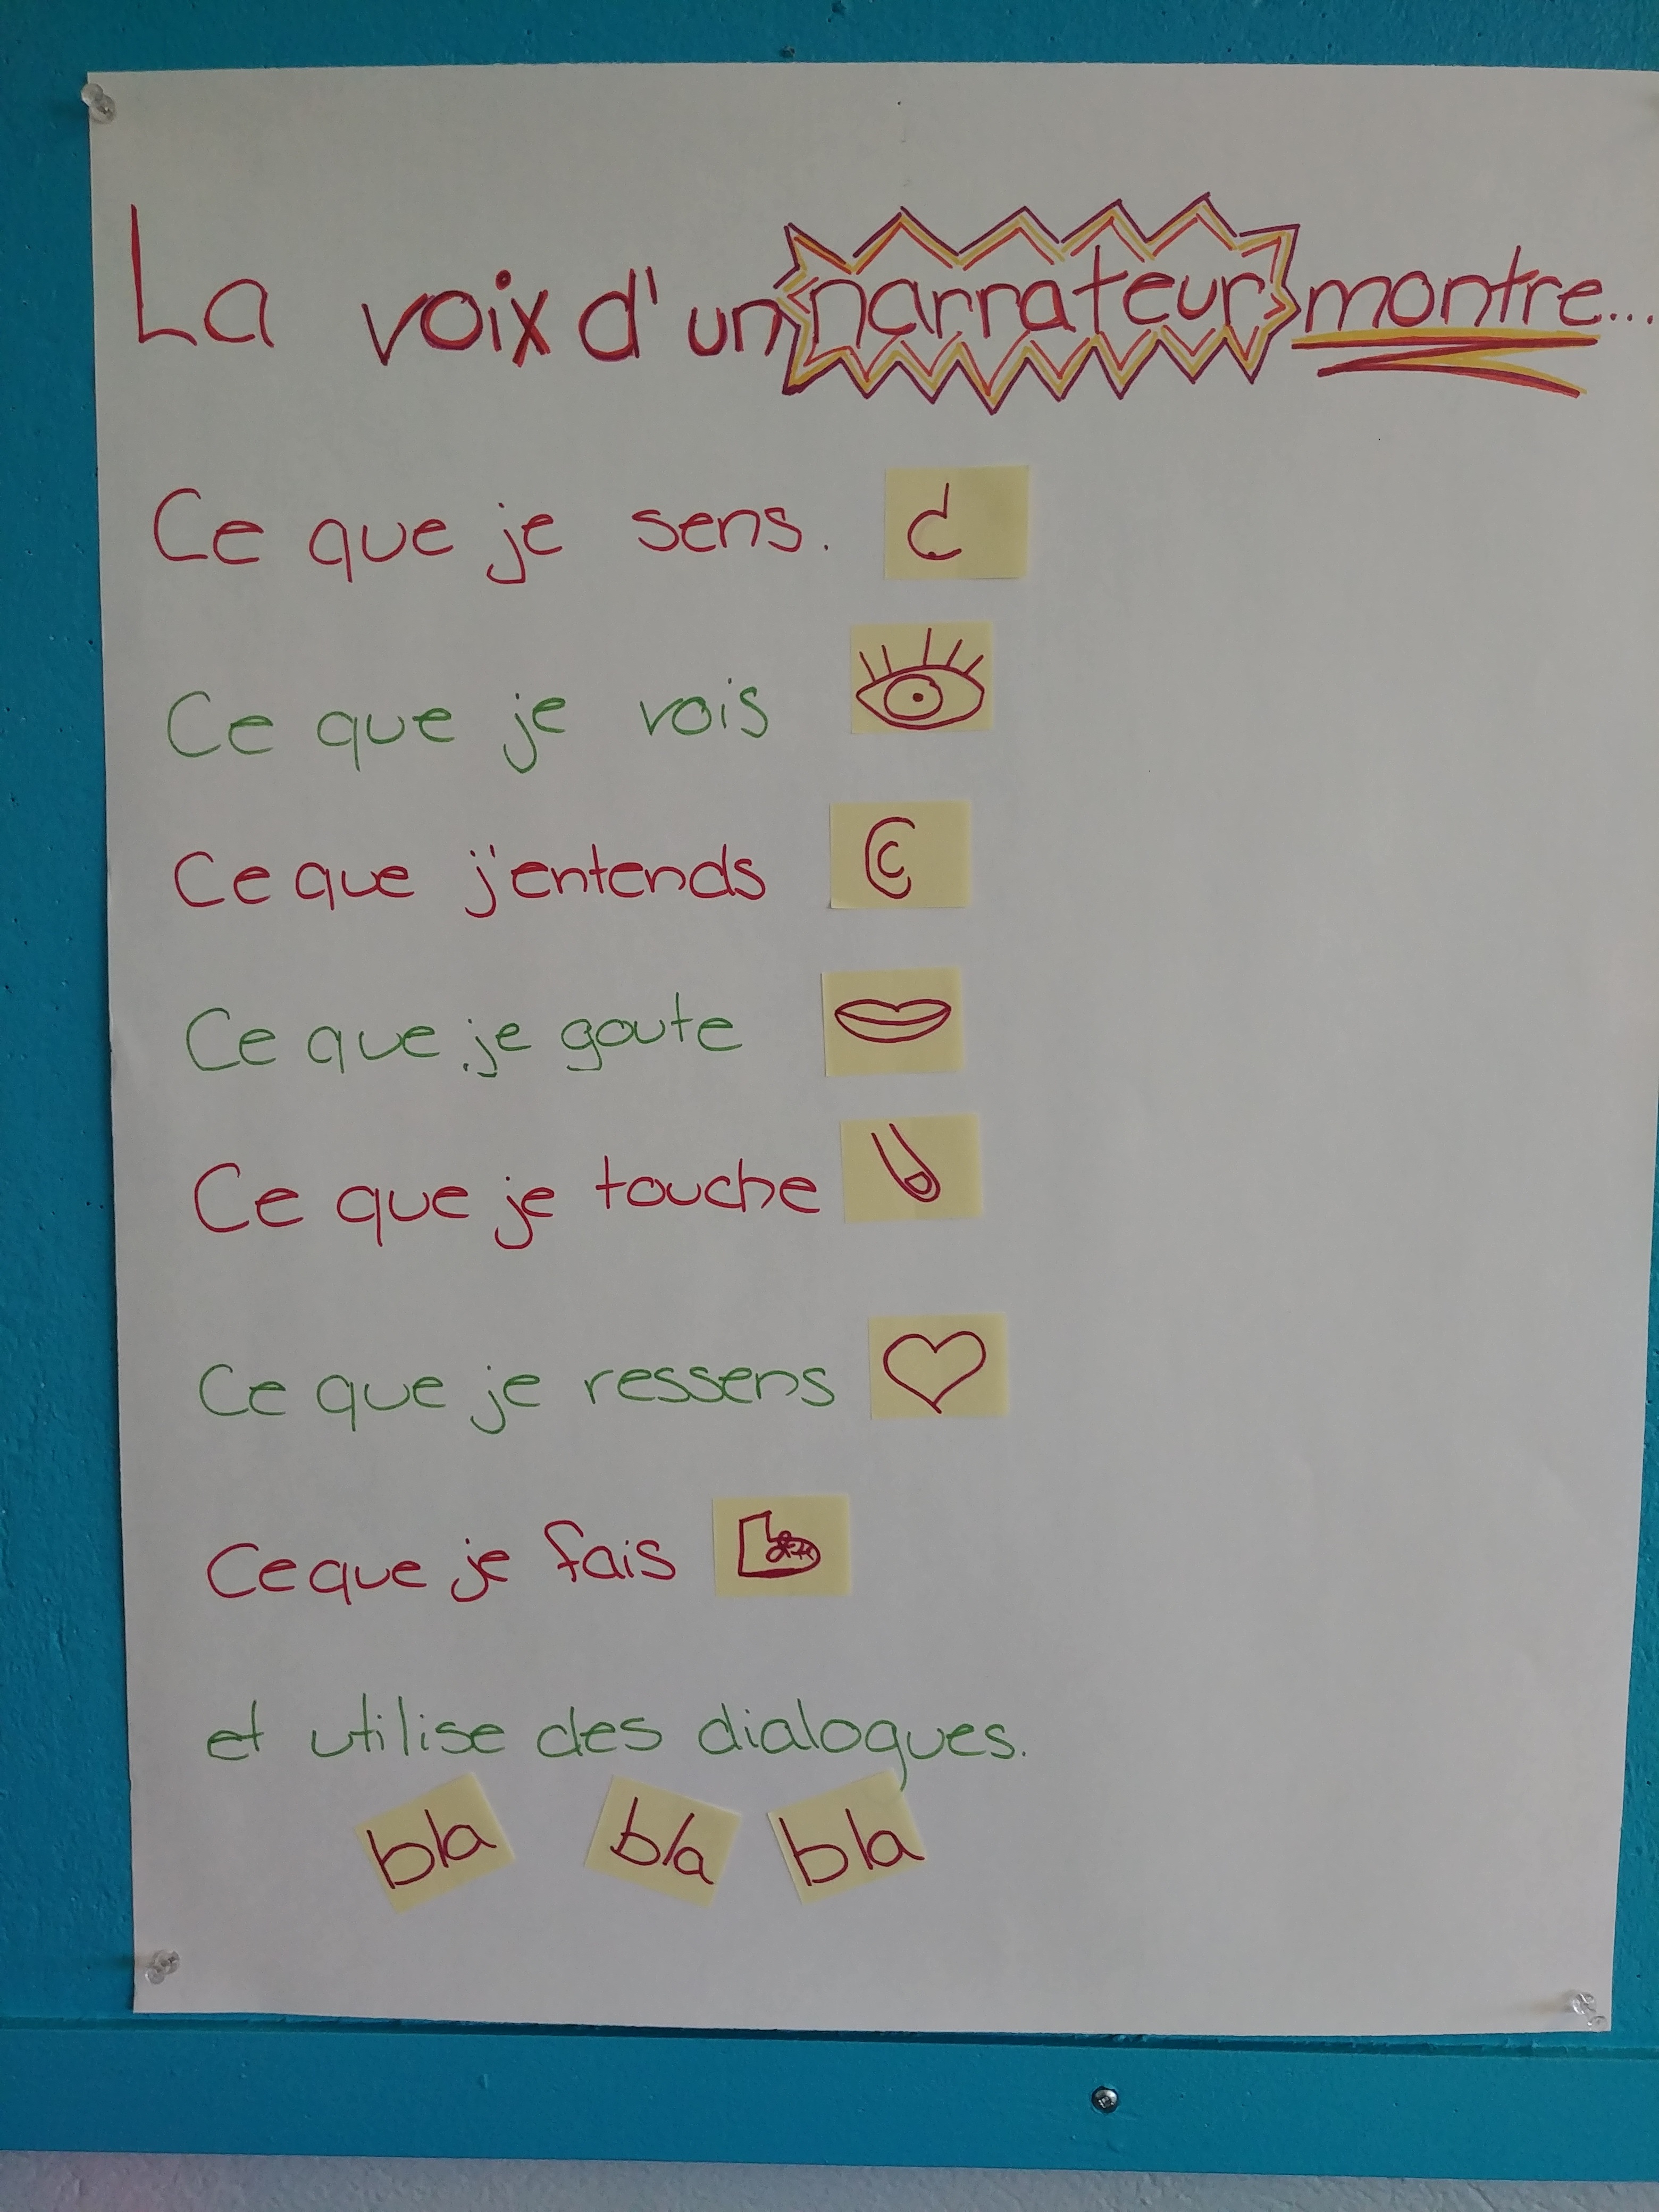 La voix d'un narrateur montre...
Ce que je sens.
Ce que je vois
Ce que j'entends
Ce que je goute
Ce que je touche
Ce que je ressens
Ce que je fais
et utilise des dialogues.
bla bla bla